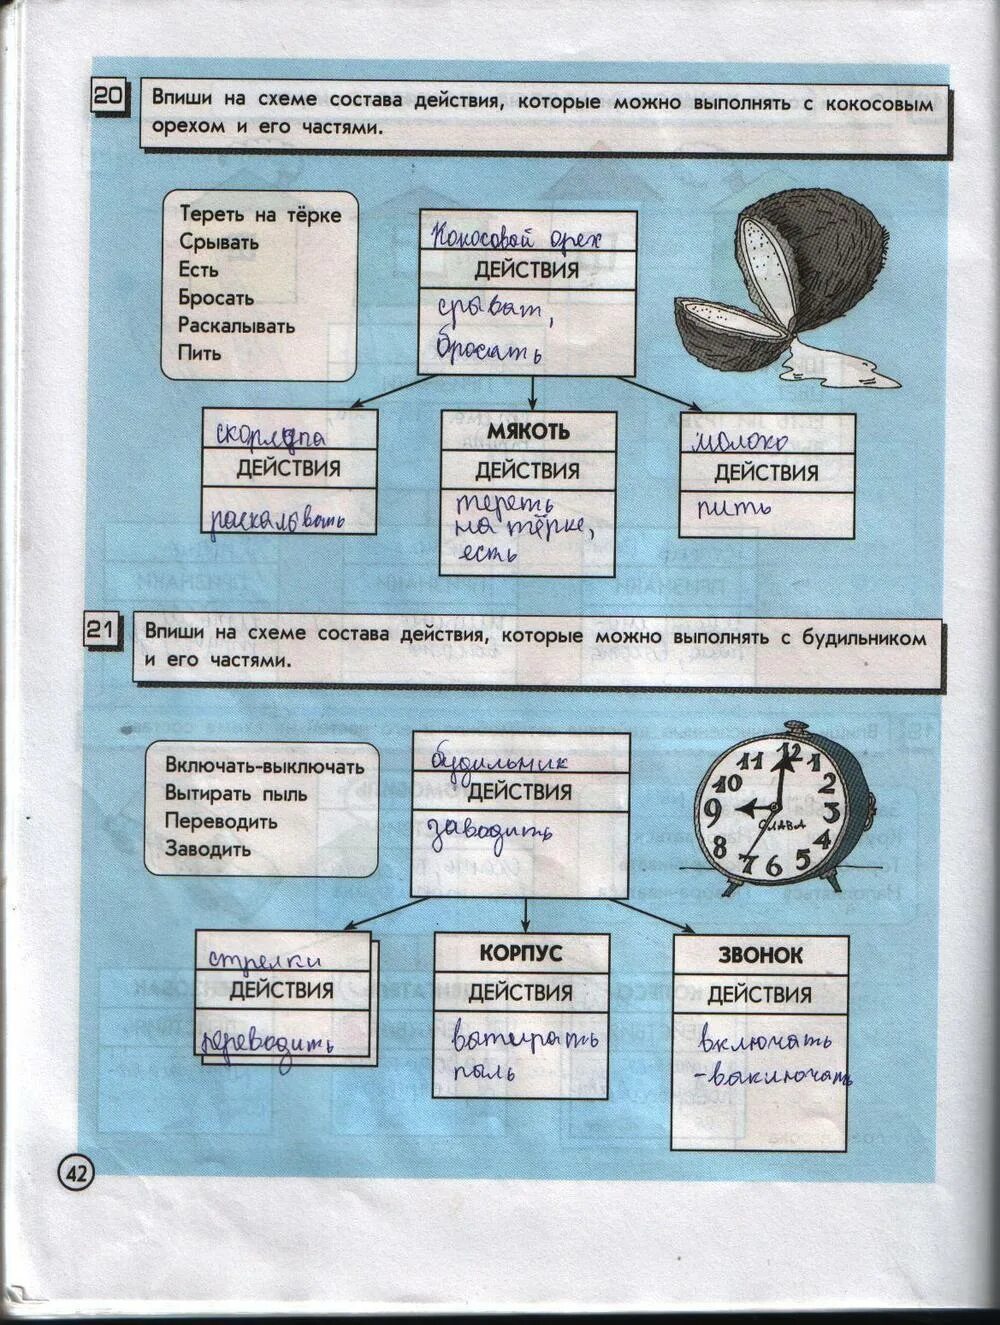 20
Впиши на схеме состава действия, которые можно выполнять с кокосовым
орехом и его частями.
Тереть на тёрке
Срывать
Есть
Бросать
Раскалывать
Пить
Кокосовой орех
ДЕЙСТВИЯ
срыват,
бросать
скорлупа
ДЕЙСТВИЯ
раскалывать
МЯКОТЬ
ДЕЙСТВИЯ
тереть
на тёрке,
есть
молоко
ДЕЙСТВИЯ
пить
21
Впиши на схеме состава действия, которые можно выполнять с будильником
и его частями.
Включать-выключать
Вытирать пыль
Переводить
Заводить
будильник
ДЕЙСТВИЯ
заводить
12
1
2
3
4
5
6
7
8
9
10
11
СЛАВА
стрелки
ДЕЙСТВИЯ
переводить
КОРПУС
ДЕЙСТВИЯ
вытирать
пыль
ЗВОНОК
ДЕЙСТВИЯ
включать
-выключать
42